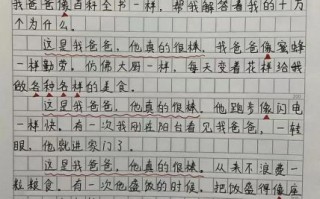 我爸爸像百科全书一样，帮我解答着我的十万
个为什么。
这是我爸爸，他真的很棒。我爸爸像蜜蜂
一样勤劳。仿佛大厨一样，每天变着花样给我
做各种各样的美食。
这是我爸爸，他真的很棒。他跑步像闪电
一样快。有一次我刚在阳台看见我爸爸，一转
眼，他就进家门了。
这是我爸爸，他真的很棒。从来不浪费一
粒粮食。有一次他盛饭的时候，把饭盛得像座